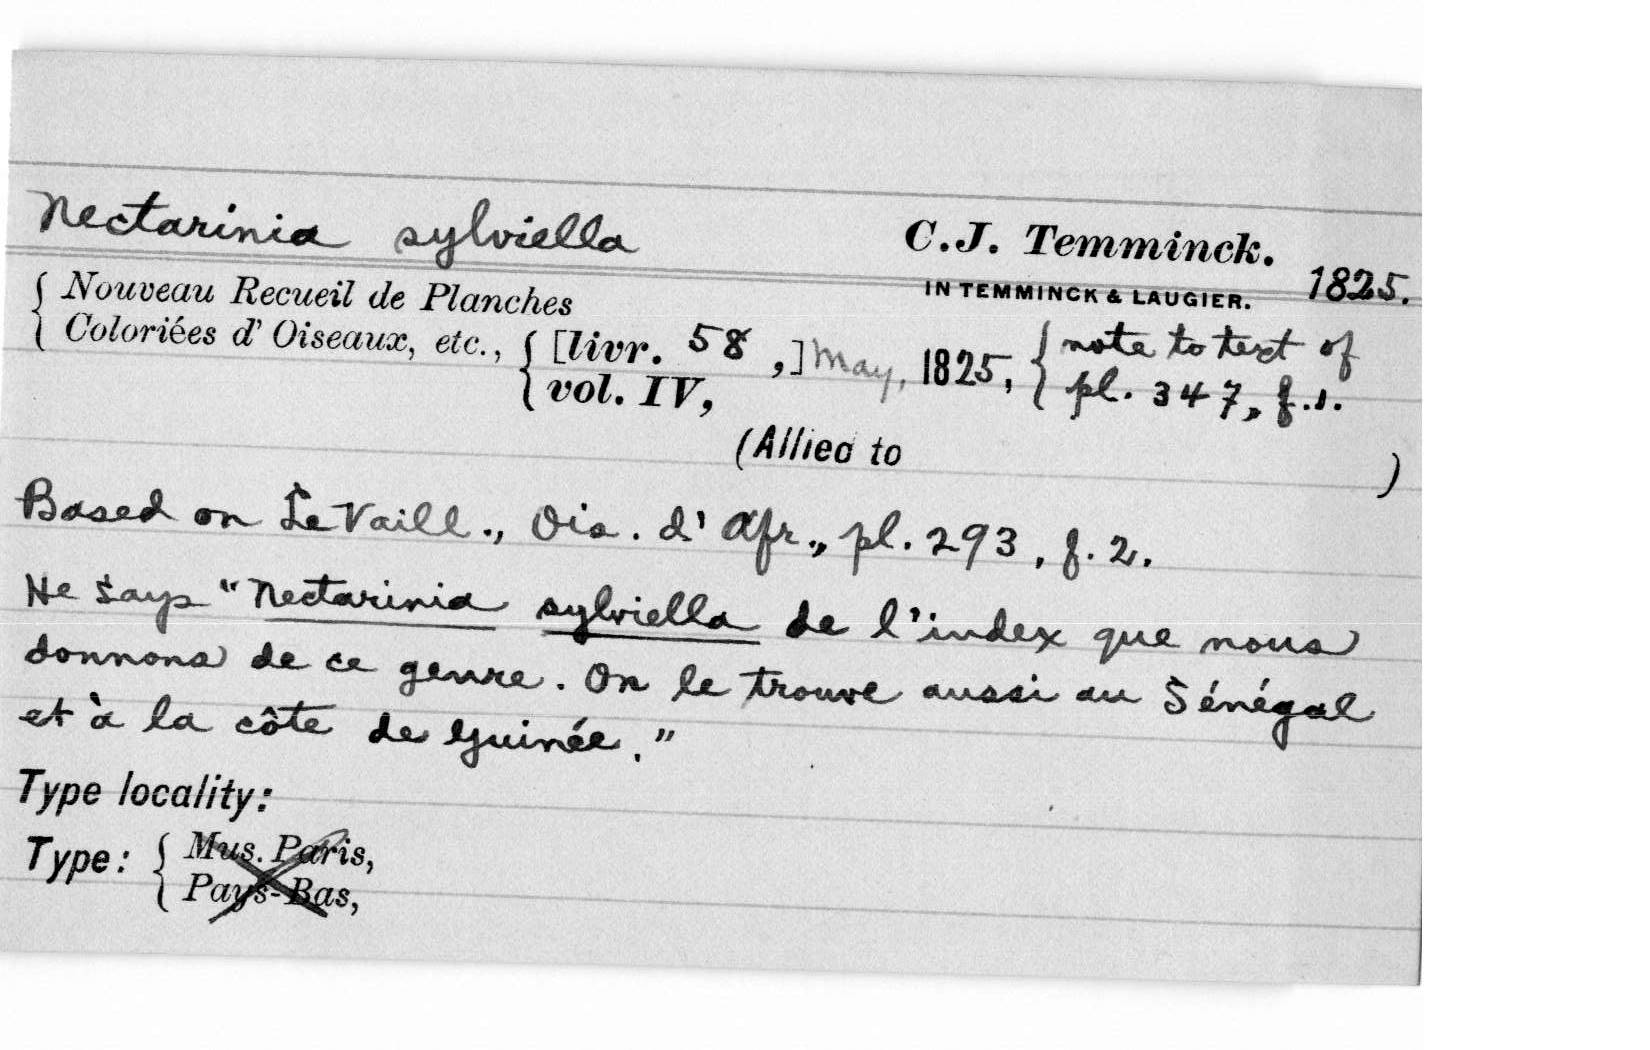 Nectarinia sylviella C.J. Temminck.
IN TEMMINCK & LAUGIER. 1825.
{ Nouveau Recueil de Planches
Coloriées d' Oiseaux, etc., { [livr. 58 ,] May, 1825, { note to text of
vol. IV, pl. 347, f.1.
(Allied to )
Based on LeVaill., Ois. d' Afr., pl. 293, f. 2.
He says "Nectarinia sylviella de l'index que nous
donnons de ce genre. On le trouve aussi au Sénégal
et à la côte de Guinée."
Type locality:
Type: { Mus. Paris,
Pays-Bas,